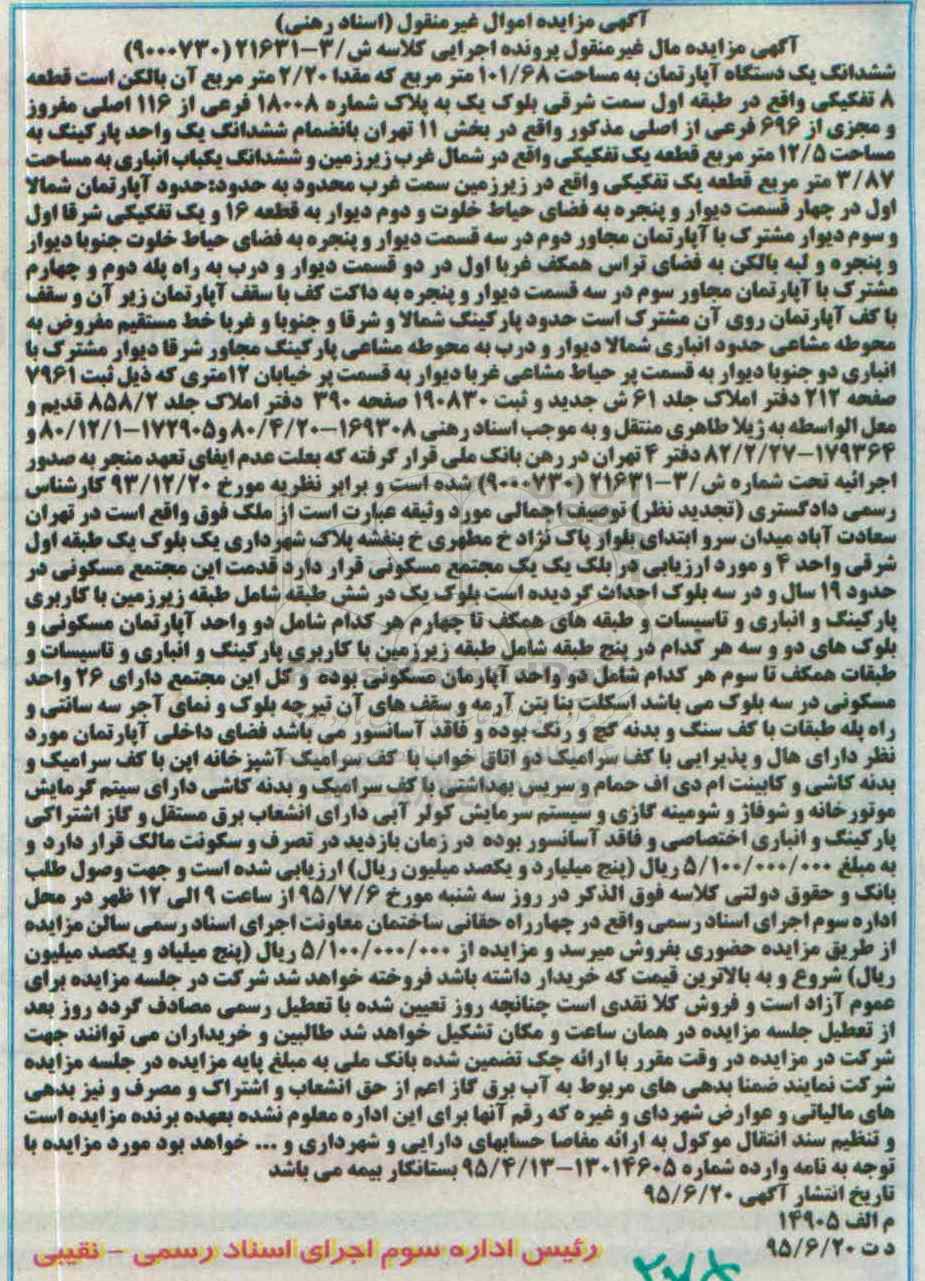 آگهی مزایده اموال غیرمنقول (اسناد رهنی)
آگهی مزایده مال غیر منقول پرونده اجرایی کلاسه ش/۳-۲۱۶۳۱ (۹۰۰۰۷۳۰)
ششدانگ یک دستگاه آپارتمان به مساحت ۱۰۱/۶۸ متر مربع که مقدا ۲/۲۰ متر مربع آن بالکن است قطعه
۸ تفکیکی واقع در طبقه اول سمت شرقی بلوک یک به پلاک شماره ۱۸۰۰۸ فرعی از ۱۱۶ اصلی مفروز
و مجزی از ۶۹۶ فرعی از اصلی مذکور واقع در بخش ۱۱ تهران بانضمام ششدانگ یک واحد پارکینگ به
مساحت ۱۲/۵ متر مربع قطعه یک تفکیکی واقع در شمال غرب زیرزمین و ششدانگ یکباب انباری به مساحت
۳/۸۷ متر مربع قطعه یک تفکیکی واقع در زیرزمین سمت غرب محدود به حدود:حدود آپارتمان شمالا
اول در چهار قسمت دیوار و پنجره به فضای حیاط خلوت و دوم دیوار به قطعه ۱۶ و یک تفکیکی شرقا اول
و سوم دیوار مشترک با آپارتمان مجاور دوم در سه قسمت دیوار و پنجره به فضای حیاط خلوت جنوبا دیوار
و پنجره و لبه بالکن به فضای تراس همکف غربا اول در دو قسمت دیوار و درب به راه پله دوم و چهارم
مشترک با آپارتمان مجاور سوم در سه قسمت دیوار و پنجره به داکت کف با سقف آپارتمان زیر آن و سقف
با کف آپارتمان روی آن مشترک است حدود پارکینگ شمالا و شرقا و جنوبا و غربا خط مستقیم مفروض به
محوطه مشاعی حدود انباری شمالا دیوار و درب به محوطه مشاعی پارکینگ مجاور شرقا دیوار مشترک با
انباری دو جنوبا دیوار به قسمت پر حیاط مشاعی غربا دیوار به قسمت پر خیابان ۱۲متری که ذیل ثبت ۷۹۶۱
صفحه ۲۱۲ دفتر املاک جلد ۶۱ ش جدید و ثبت ۱۹۰۸۳۰ صفحه ۳۹۰ دفتر املاک جلد ۸۵۸/۲ قدیم و
مع الواسطه به ژیلا طاهری منتقل و به موجب اسناد رهنی ۱۶۹۳۰۸-۸۰/۴/۲۰ و ۱۷۲۹۰۵-۸۰/۱۲/۱ و
۱۷۹۳۶۴-۸۲/۲/۲۷ دفتر ۴ تهران در رهن بانک ملی قرار گرفته که بعلت عدم ایفای تعهد منجر به صدور
اجرائیه تحت شماره ش/۳-۲۱۶۳۱ (۹۰۰۰۷۳۰) شده است و برابر نظریه مورخ ۹۳/۱۲/۲۰ کارشناس
رسمی دادگستری (تجدید نظر) توصیف اجمالی مورد وثیقه عبارت است از ملک فوق واقع است در تهران
سعادت آباد میدان سرو ابتدای بلوار پاک نژاد خ مطهری خ بنفشه پلاک شهرداری یک بلوک یک طبقه اول
شرقی واحد ۴ و مورد ارزیابی در بلک یک یک مجتمع مسکونی قرار دارد قدمت این مجتمع مسکونی در
حدود ۱۹ سال و در سه بلوک احداث گردیده است بلوک یک در شش طبقه شامل طبقه زیرزمین با کاربری
پارکینگ و انباری و تاسیسات و طبقه های همکف تا چهارم هر کدام شامل دو واحد آپارتمان مسکونی و
بلوک های دو و سه هر کدام در پنج طبقه شامل طبقه زیرزمین با کاربری پارکینگ و انباری و تاسیسات و
طبقات همکف تا سوم هر کدام شامل دو واحد آپارمان مسکونی بوده و کل این مجتمع دارای ۲۶ واحد
مسکونی در سه بلوک می باشد اسکلت بنا بتن آرمه و سقف های آن تیرچه بلوک و نمای آجر سه سانتی و
راه پله طبقات با کف سنگ و بدنه گچ و رنگ بوده و فاقد آسانسور می باشد فضای داخلی آپارتمان مورد
نظر دارای هال و پذیرایی با کف سرامیک دو اتاق خواب با کف سرامیک آشپزخانه اپن با کف سرامیک و
بدنه کاشی و کابینت ام دی اف حمام و سریس بهداشتی با کف سرامیک و بدنه کاشی دارای سیتم گرمایش
موتورخانه و شوفاژ و شومینه گازی و سیستم سرمایش کولر آبی دارای انشعاب برق مستقل و گاز اشتراکی
پارکینگ و انباری اختصاصی و فاقد آسانسور بوده در زمان بازدید در تصرف و سکونت مالک قرار دارد و
به مبلغ ۵/۱۰۰/۰۰۰/۰۰۰ ریال (پنج میلیارد و یکصد میلیون ریال) ارزیابی شده است و جهت وصول طلب
بانک و حقوق دولتی کلاسه فوق الذکر در روز سه شنبه مورخ ۹۵/۷/۶ از ساعت ۹ الی ۱۲ ظهر در محل
اداره سوم اجرای اسناد رسمی واقع در چهارراه حقانی ساختمان معاونت اجرای اسناد رسمی سالن مزایده
از طریق مزایده حضوری بفروش میرسد و مزایده از ۵/۱۰۰/۰۰۰/۰۰۰ ریال (پنج میلیاد و یکصد میلیون
ریال) شروع و به بالاترین قیمت که خریدار داشته باشد فروخته خواهد شد شرکت در جلسه مزایده برای
عموم آزاد است و فروش کلا نقدی است چنانچه روز تعیین شده با تعطیل رسمی مصادف گردد روز بعد
از تعطیل جلسه مزایده در همان ساعت و مکان تشکیل خواهد شد طالبین و خریداران می توانند جهت
شرکت در مزایده در وقت مقرر با ارائه چک تضمین شده بانک ملی به مبلغ پایه مزایده در جلسه مزایده
شرکت نمایند ضمنا بدهی های مربوط به آب برق گاز اعم از حق انشعاب و اشتراک و مصرف و نیز بدهی
های مالیاتی و عوارض شهردای و غیره که رقم آنها برای این اداره معلوم نشده بعهده برنده مزایده است
و تنظیم سند انتقال موکول به ارائه مفاصا حسابهای دارایی و شهرداری و ... خواهد بود مورد مزایده با
توجه به نامه وارده شماره ۱۳۰۱۴۶۰۵-۹۵/۴/۱۳ بستانکار بیمه می باشد
تاریخ انتشار آگهی ۹۵/۶/۲۰
م الف ۱۴۹۰۵
د ت ۹۵/۶/۲۰
رئیس اداره سوم اجرای اسناد رسمی - نقیبی